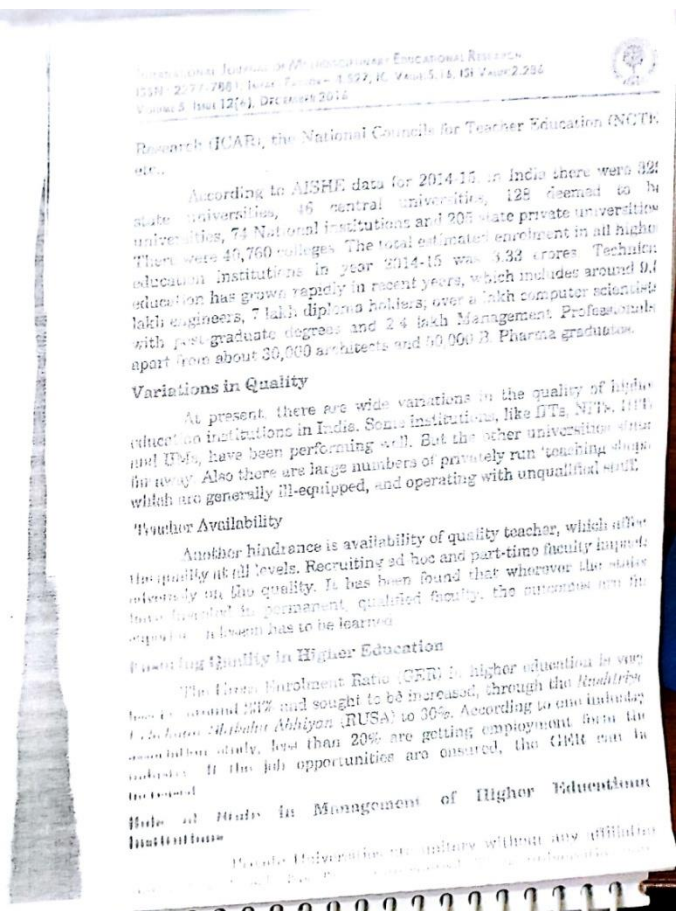 INTERNATIONAL JOURNAL OF MULTIDISCIPLINARY EDUCATIONAL RESEARCH
ISSN : 2277-7881; IMPACT FACTOR - 4.527; IC VALUE:5.16; ISI VALUE:2.286
VOLUME 5, ISSUE 12(6), DECEMBER 2016
Research (ICAR), the National Councils for Teacher Education (NCTE
etc.,
According to AISHE data for 2014-15, in India there were 32
state universities, 46 central universities, 128 deemed to be
universities, 74 National institutions and 205 state private universities
There were 40,760 colleges. The total estimated enrolment in all higher
education Institutions in year 2014-15 was 3.33 crores. Technical
education has grown rapidly in recent years, which includes around 9.
lakh engineers, 7 lakh diploma holders; over a lakh computer scientists
with post-graduate degrees and 2.4 lakh Management Professionals
apart from about 30,000 architects and 50,000 B. Pharma graduates.
Variations in Quality
At present, there are wide variations in the quality of higher
education institutions in India. Some institutions, like IITs, NITs,
and IIMs, have been performing well. But the other universities
far away. Also there are large numbers of privately run 'teaching shops
which are generally ill-equipped, and operating with unqualified staff.
Teacher Availability
Another hindrance is availability of quality teacher, which
the quality at all levels. Recruiting ad hoc and part-time faculty
adversely on the quality. It has been found that wherever the
have invested in permanent, qualified faculty, the outcomes are
superior. A lesson has to be learned
Ensuring Quality in Higher Education
The Gross Enrolment Ratio (GER) in higher education is very
less i.e. around 23% and sought to be increased, through the Rashtriya
Uchchatar Shiksha Abhiyan (RUSA) to 30%. According to one industry
association study, less than 20% are getting employment form the
industry. If the job opportunities are ensured, the GER can be
increased
Role of State in Management of Higher Educational
Institutions
Universities are unitary without any affiliation